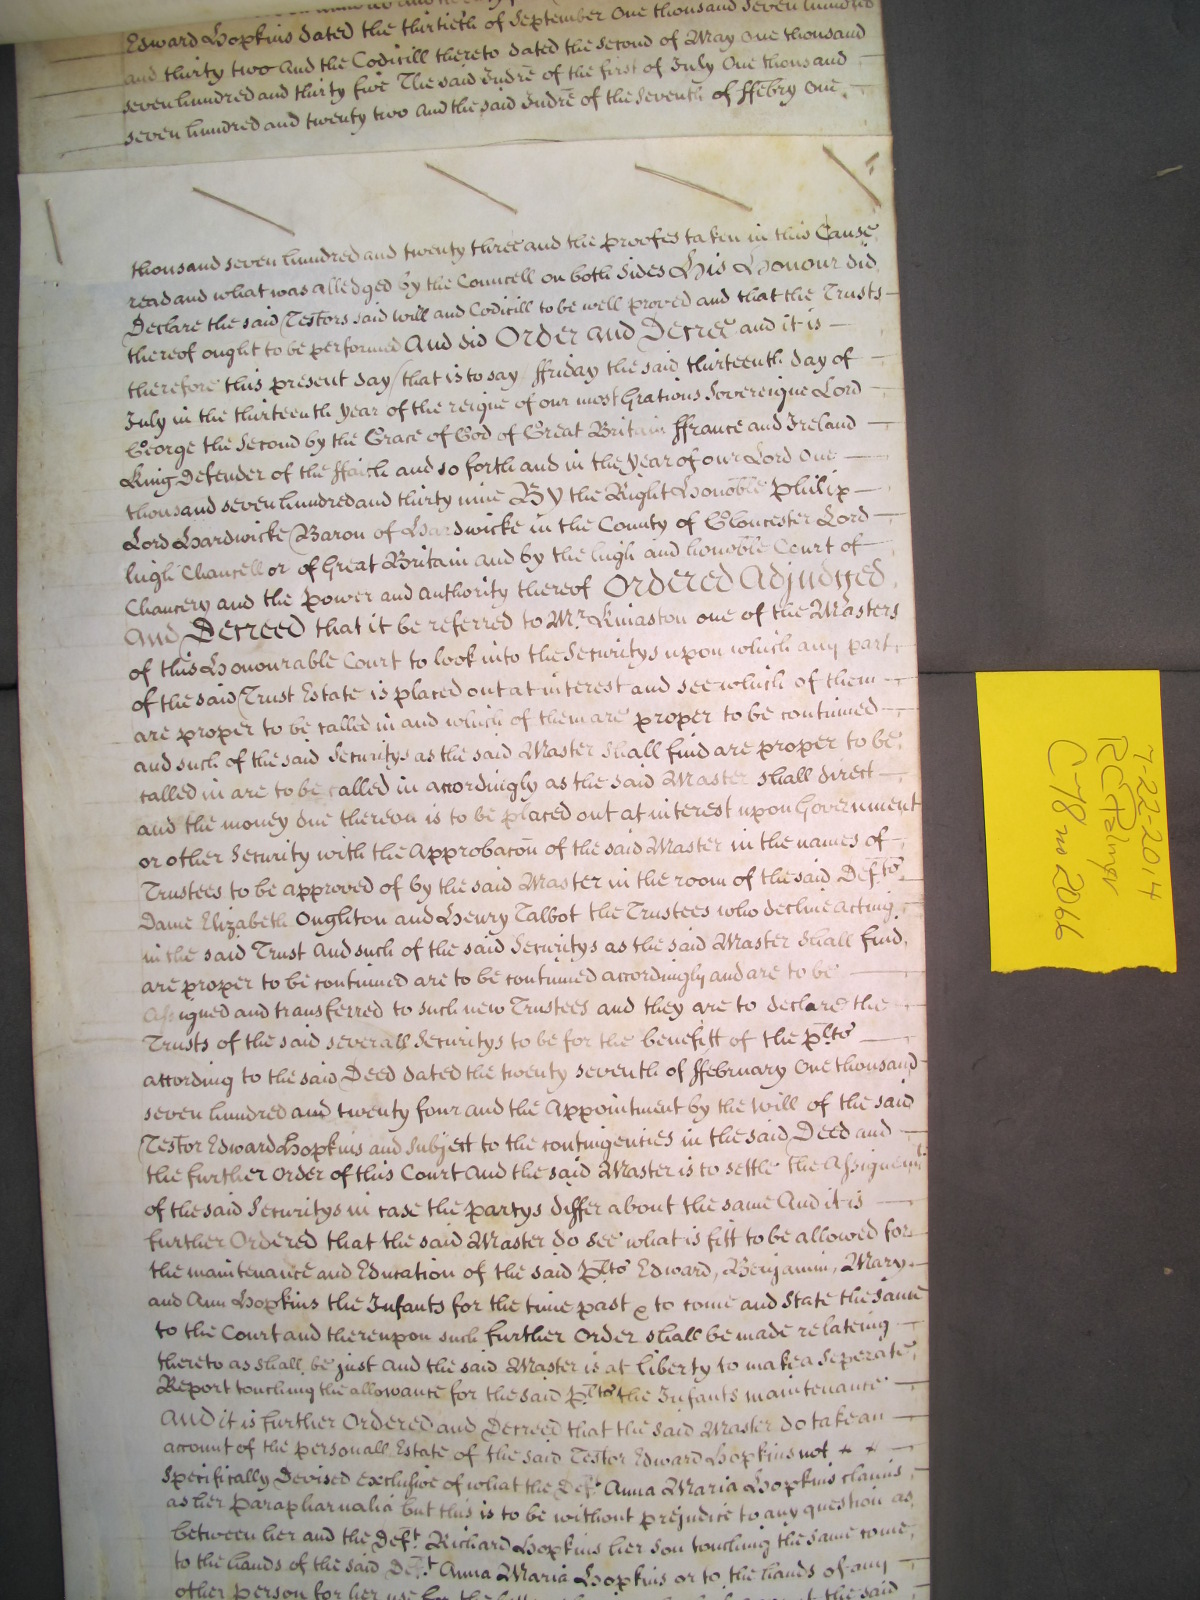 Edward Hopkins dated the thirtieth of September One thousand seven hundred
and thirty two And the Codicill thereto dated the second of May One thousand
seven hundred and thirty five The said Indre of the first of July One thousand
seven hundred and twenty two And the said Indre of the seventh of ffebry One
thousand seven hundred and twenty three and the proofes taken in this Cause
read and what was alledged by the Councell on both sides His Honour did
Declare the said Testors said will and Codicill to be well proved and that the Trusts
thereof ought to be performed And did Order And Decree and it is
therefore this present day (that is to say) ffriday the said thirteenth day of
July in the thirteenth year of the reigne of our most Gratious Sovereigne Lord
George the Second by the Grace of God of Great Britain ffrance and Ireland
King Defender of the ffaith and so forth and in the year of our Lord One
thousand seven hundred and thirty nine By the Right Honoble Philip
Lord Hardwicke Baron of Hardwicke in the County of Gloucester Lord
high Chancellor of Great Britain and by the high and honoble Court of
Chancery and the power and authority thereof Ordered Adjudged
And Decreed that it be referred to Mr. Kinaston one of the Masters
of this Honourable Court to look into the Securitys upon which any part
of the said Trust Estate is placed out at interest and see which of them
are proper to be called in and which of them are proper to be continued
and such of the said Securitys as the said Master shall find are proper to be
called in are to be called in accordingly as the said Master shall direct
and the money due thereon is to be placed out at interest upon Government
or other Security with the Approbacon of the said Master in the names of
Trustees to be approved of by the said Master in the room of the said Defts
Dame Elizabeth Oughton and Henry Talbot the Trustees who decline acting
in the said Trust And such of the said Securitys as the said Master shall find
are proper to be continued are to be continued accordingly and are to be
Assigned and transferred to such new Trustees and they are to declare the
Trusts of the said severall Securitys to be for the benefitt of the plts
according to the said Deed dated the twenty seventh of ffebruary One thousand
seven hundred and twenty four and the Appointment by the will of the said
Testor Edward Hopkins and subject to the contingencies in the said Deed and
the further Order of this Court And the said Master is to settle the Assignemt
of the said Securitys in case the partys differ about the same And it is
further Ordered that the said Master do see what is fitt to be allowed for
the maintenance and Education of the said Plts Edward, Benjamin, Mary
and Ann Hopkins the Infants for the time past & to come and state the same
to the Court and thereupon such further Order shall be made relateing
thereto as shall be just And the said Master is at liberty to make a seperate
Report touching the allowance for the said Plts the Infants maintenance
And it is further Ordered and Decreed that the said Master do take an
account of the personall Estate of the said Testor Edward Hopkins not x x
specifically Devised exclusive of what the Deft Anna Maria Hopkins claims
as her paraphernalia but this is to be without prejudice to any question as
between her and the Deft. Richard Hopkins her son touching the same come
to the hands of the said Deft Anna Maria Hopkins or to the hands of any
other person for her use
7-22-2014
RC Palmer
C 78 no 2066